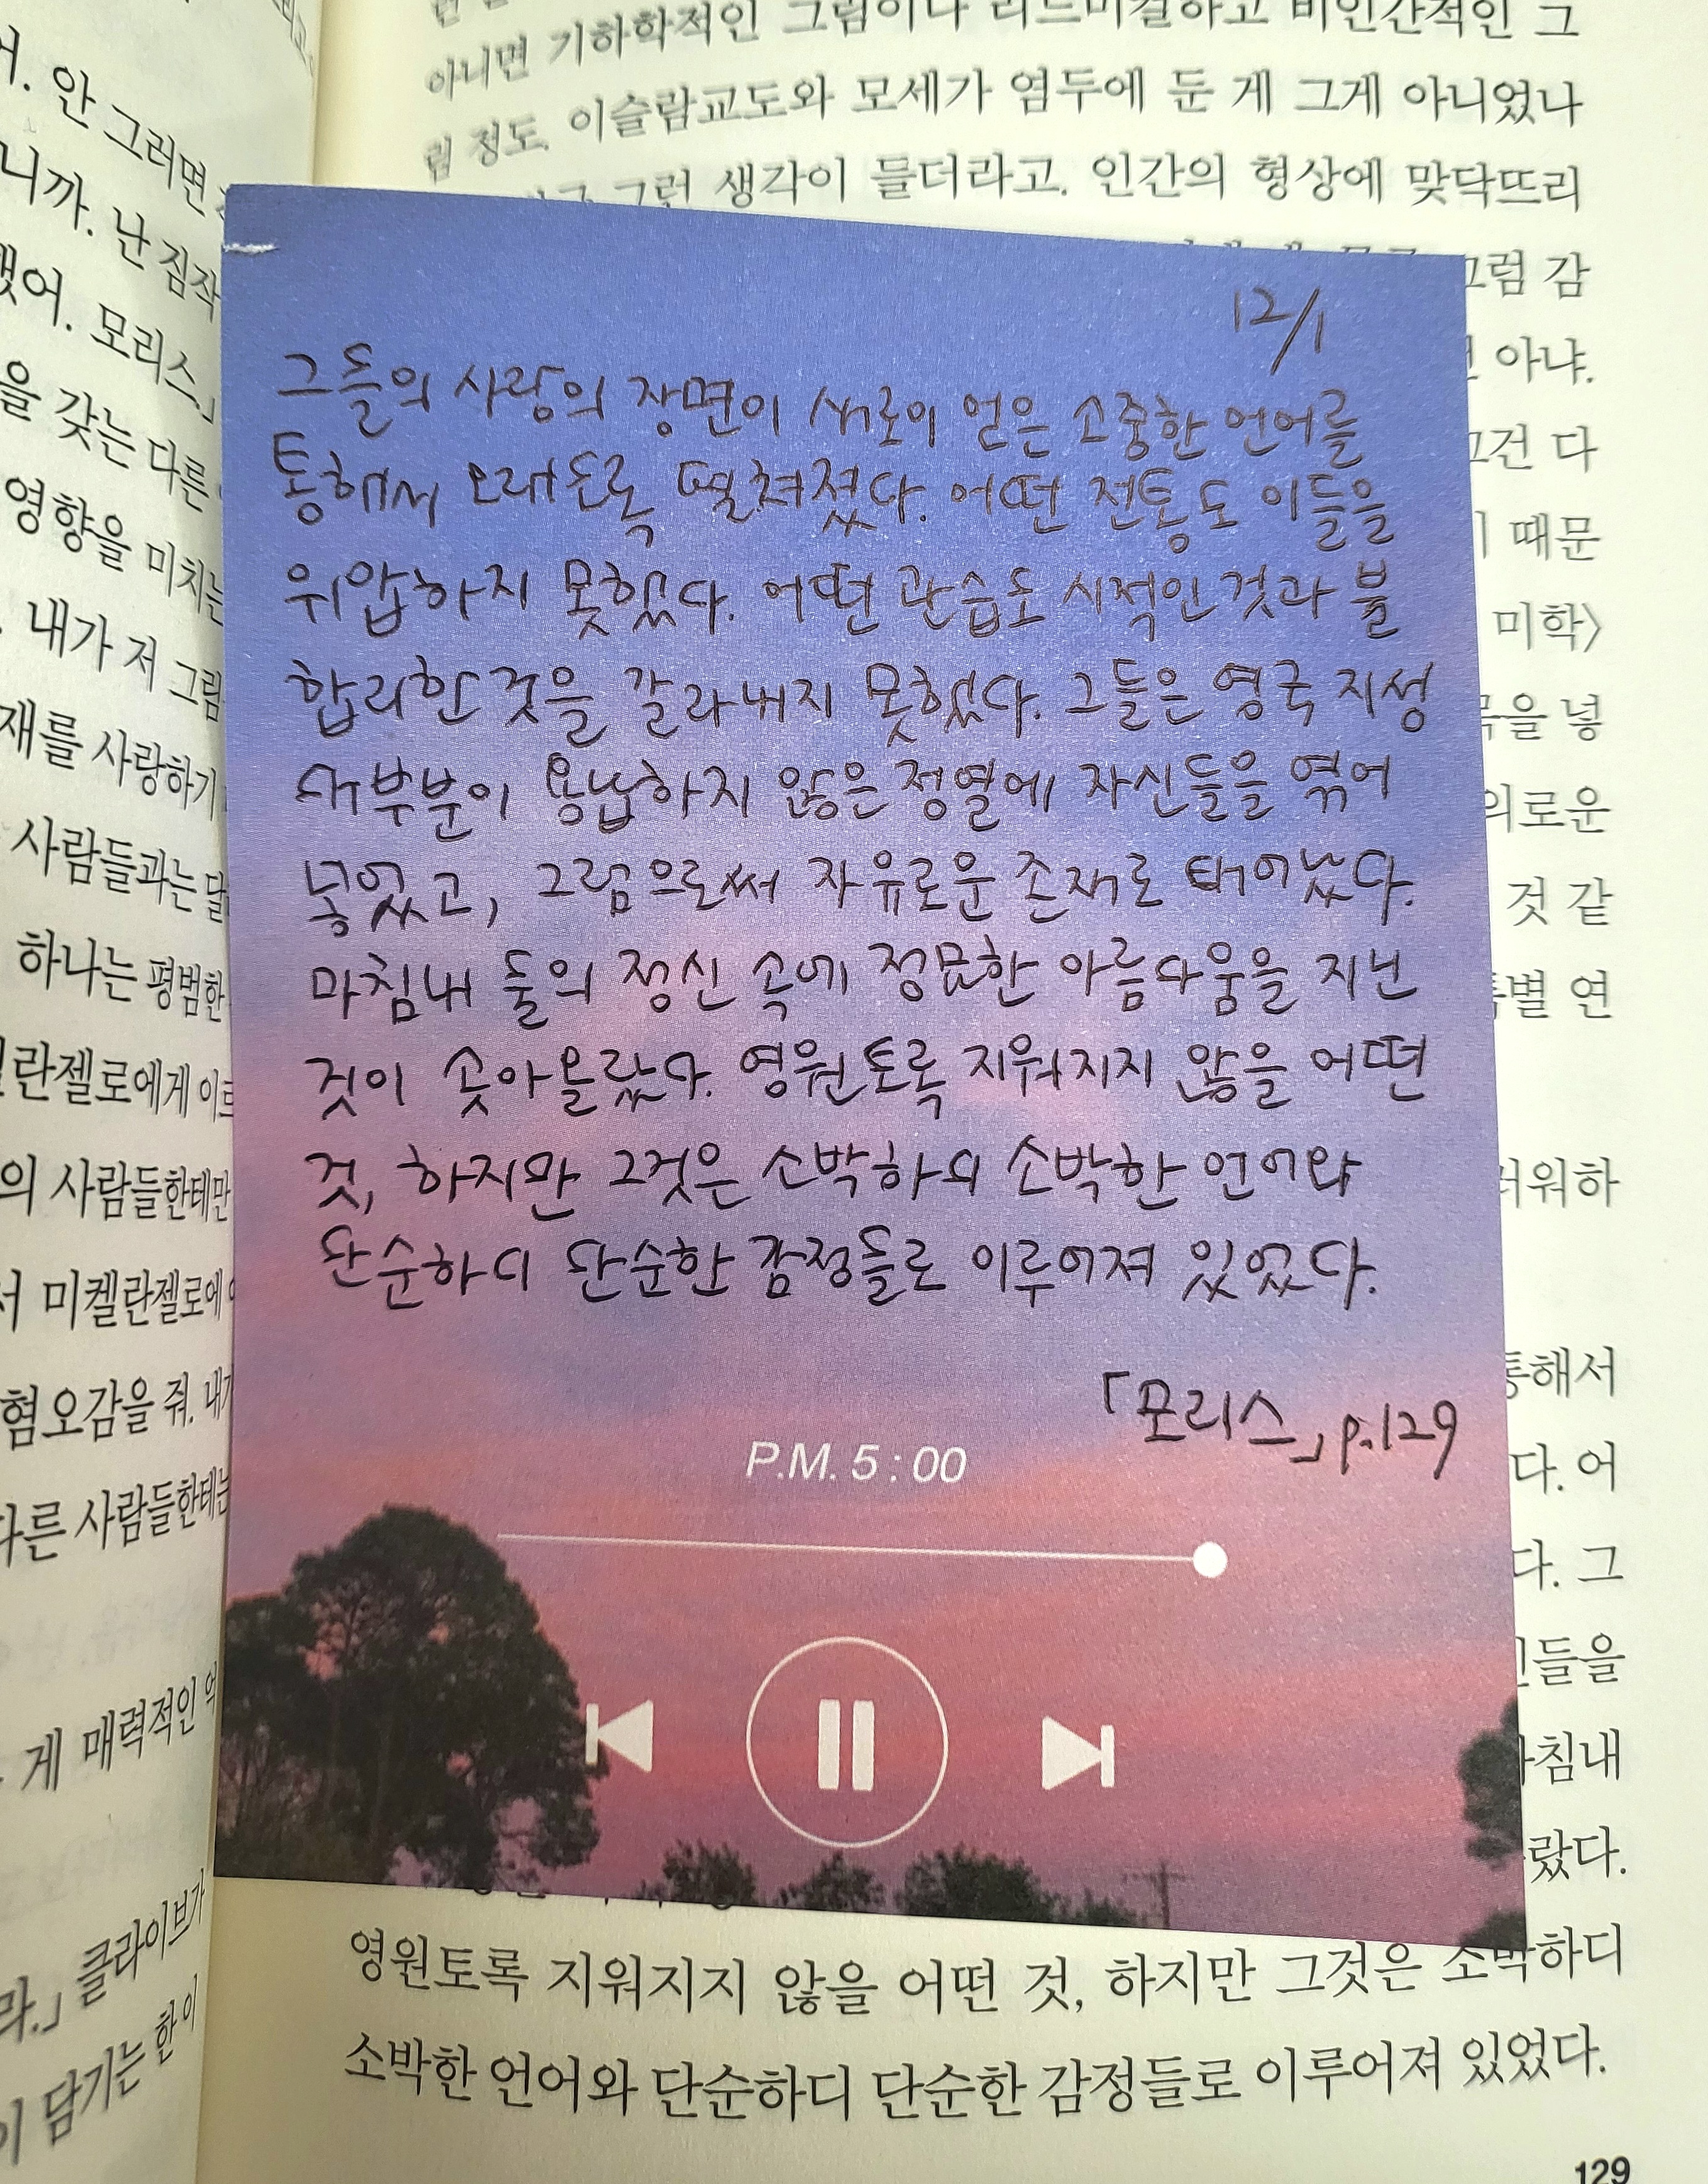 안 그러면
니까. 난 짐작
했어. 모리스」
을 갖는 다른
영향을 미치는
내가 저 그림
재를 사랑하기
사람들과는
하나는 평범한
란젤로에게
의 사람들한테만
서 미켈란젤로에
혐오감을 줘. 내가
다른 사람들한테는
게 매력적인
클라이브가
담기는 한 이
아니면 기하학적인 그림이나 비인간적인 그
림 정도. 이슬람교도와 모세가 염두에 둔 게 그게 아니었나
그런 생각이 들더라고. 인간의 형상에 맞닥뜨리
그럼 감
아냐.
그건 다
때문
미학〉
넣
의로운
것 같
특별 연
러워하
통해서
다. 어
다. 그
들을
마침내
랐다.
12/1
그들의 사랑의 장면이 새로이 얻은 소중한 언어를
통해서 오래도록 펼쳐졌다. 어떤 전통도 이들을
위압하지 못했다. 어떤 관습도 시적인 것과 불
합리한 것을 갈라내지 못했다. 그들은 영국 지성
대부분이 용납하지 않은 정열에 자신들을 엮어
넣었고, 그럼으로써 자유로운 존재로 태어났다.
마침내 둘의 정신 속에 정묘한 아름다움을 지닌
것이 솟아올랐다. 영원토록 지워지지 않을 어떤
것, 하지만 그것은 소박하디 소박한 언어와
단순하디 단순한 감정들로 이루어져 있었다.
「모리스」 p.129
P.M. 5 : 00
영원토록 지워지지 않을 어떤 것, 하지만 그것은 소박하디
소박한 언어와 단순하디 단순한 감정들로 이루어져 있었다.
129